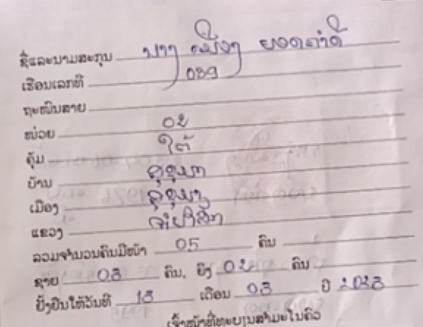 ຊື່ແລະນາມສະກຸນ ນາງ ເມືອງ ຍອດຄຳດີ
ເຮືອນເລກທີ 039
ຖະໜົນສາຍ
ໜ່ວຍ 02
ຄຸ້ມ ໃຕ້
ບ້ານ ສຸຂຸມາ
ເມືອງ ສຸຂຸມາ
ແຂວງ ຈຳປາສັກ
ລວມຈຳນວນຄົນມີໜ້າ 05 ຄົນ
ຊາຍ 03 ຄົນ, ຍິງ 02 ຄົນ
ຢັ້ງຢືນໃຫ້ວັນທີ 13 ເດືອນ 03 ປີ 2023
ເຈົ້າໜ້າທີ່ທະບຽນສຳມະໂນຄົວ